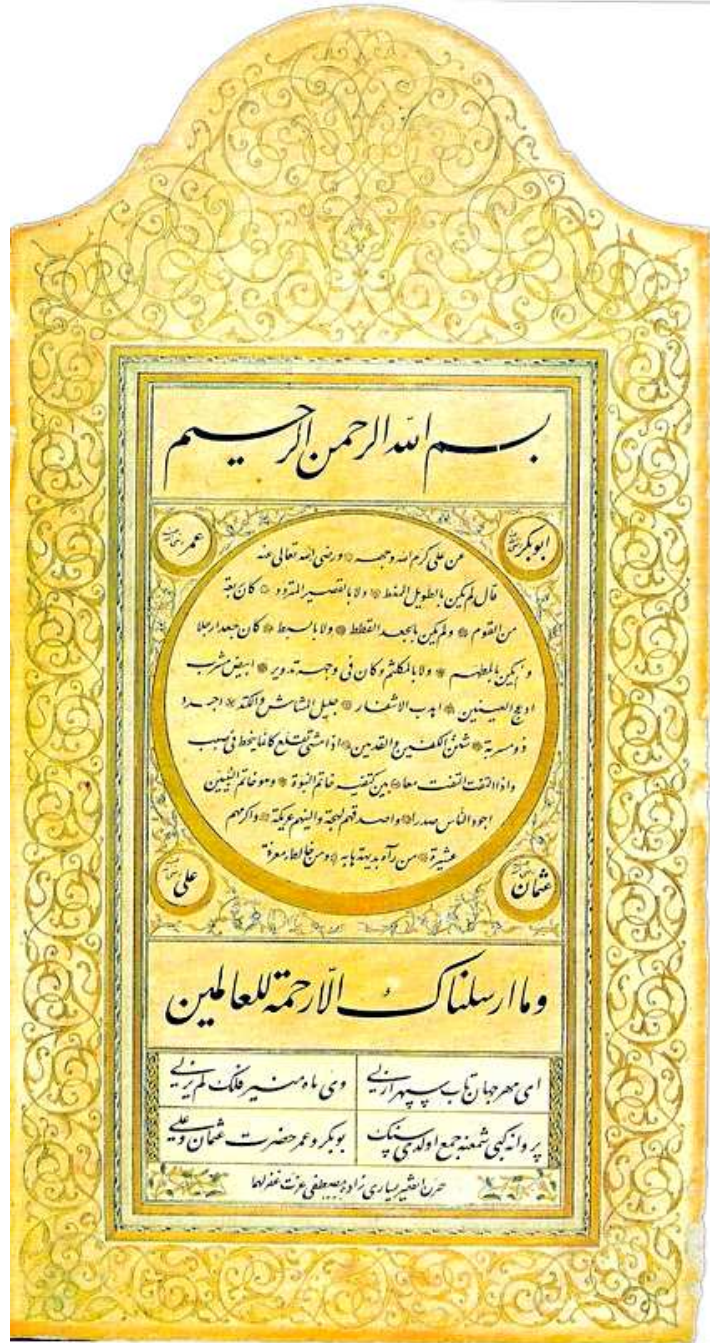 بسم الله الرحمن الرحيم
ابوبكر
عمر
عن على كرم الله وجهه ورضى الله تعالى عنه
قال لم يكن بالطويل الممغط ولا بالقصير المتردد كان ربعة
من القوم ولم يكن بالجعد القطط ولا بالسبط كان جعدا رجلا
ولم يكن بالمطهم ولا بالمكلثم وكان فى وجهه تدوير ابيض مشرب
ادعج العينين اهدب الاشفار جليل المشاش والكتد اجرد
ذو مسربة شثن الكفين والقدمين اذا مشى تقلع كانما ينحط فى صبب
واذا التفت التفت معا بين كتفيه خاتم النبوة وهو خاتم النبيين
اجود الناس صدرا واصدقهم لهجة والينهم عريكة واكرمهم
عشيرة من رآه بديهة هابه ومن خالطه معرفة
عثمان
على
وما ارسلناك الا رحمة للعالمين
اى مهر جهان تاب سپهر ازلى وى ماه منير فلك لم يزلى
پروانه كبى شمعنه جمع اولدى سنك بوبكر و عمر حضرت عثمان و على
يسارى زاده مصطفى عزت غفر لهما